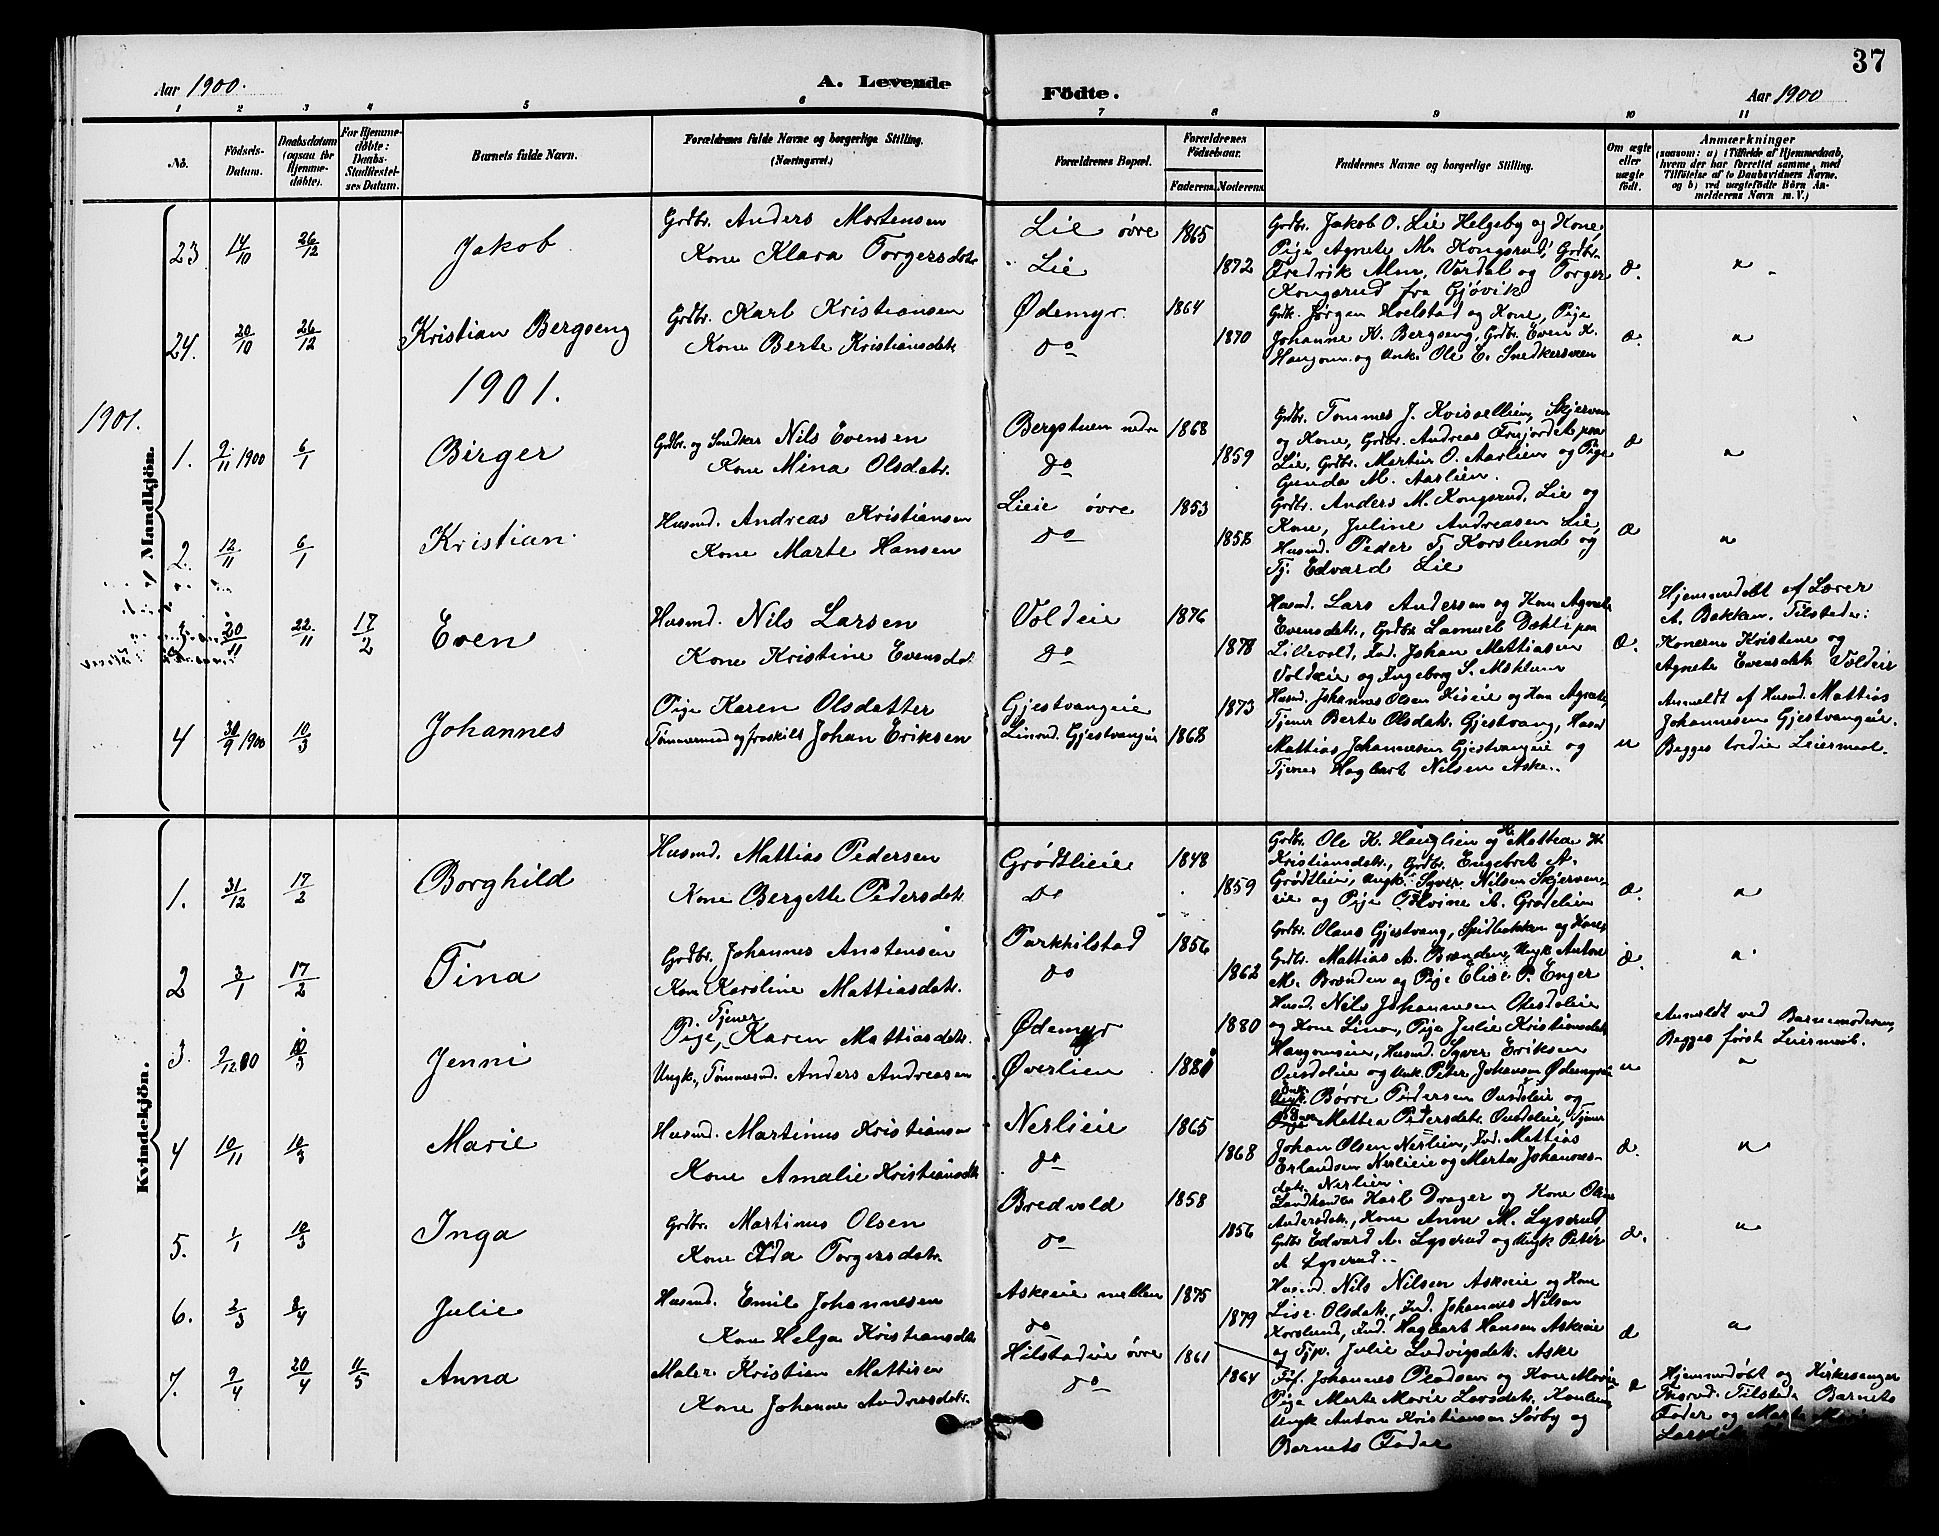 37
Aar 1900.
A. Levende
Födte.
Aar 1900
1 2 3 4 5 6 7 8 9 10 11
No.
Födsels-Datum.
Daabsdatum (ogsaa for Hjemme-döbte).
For Hjemme-döbte: Daabs-Stadfæstel-ses Datum.
Barnets fulde Navn.
Forældrenes fulde Navne og borgerlige Stilling.
(Næringsvei.)
Forældrenes Bopæl.
Forældrenes Födselsaar.
Faderens. Moderens.
Faddernes Navne og borgerlige Stilling.
Om ægte eller uægte födt.
Anmærkninger
(saasom: a) i Tilfælde af Hjemmedaab, hvem der har forrettet samme, med Tilföielse af to Daabsvidners Navne, og b) ved uægtefödte Börn An-melderens Navn m. V.)
Mandkjön.
23 14/10 26/12 Jakob
Grdbr. Anders Mortensen
Kone Klara Torgersdatr.
Lie övre
Lie
1865
1872
Grdbr. Jakob O. Lie Helgeby og Kone,
Pige Agnete M. Kongsrud, Grdbr.
Fredrik Alm, Vardal og Torger
Kongsrud fra Gjövik
Æ.
24. 20/10 26/12 Kristian Bergseng
Grdbr. Karl Kristiansen
Kone Berte Kristiansdatr.
Ødemyr
do
1864
1870
Grdbr. Jörgen Hoelstad og Kone, Pige
Johanne K. Bergseng, Grdbr. Even K.
Haugom og Unk. Ole E. Snedkersveen
Æ.
1901.
1901.
1. 9/11 1900 6/1 Birger
Grdbr. og Snedker Nils Evensen
Kone Mina Olsdatr.
Bergstuen nedre
do
1868
1859
Grdbr. Tommes J. Kvisellien, Skjerven
og Kone, Grdbr. Andreas Frujordet paa
Lie, Grdbr. Martin O. Aarlien og Pige
Gunda M. Aarlien.
Æ
2. 12/11 6/1 Kristian.
Husmd. Andreas Kristiansen
Kone Marte Hansen
Lieie övre
do
1853
1858
Grdbr. Anders M. Kongsrud, Lie og
Kone, Juline Andreasen Lie,
Husmd. Peder T. Korslund og
Tj. Edvard Lie
Æ
20/11 22/11 17/2 Even
Husmd. Nils Larsen
Kone Kristine Evensdr.
Voldeie
do
1876
1878
Husmd. Lars Andersen og Kone Agnete
Evensdatr., Grdbr. Samuel Dæhli paa
Lillevold, Ind. Johan Mattiasen
Voldeie og Ingeborg S.
Æ.
Hjemmedöbt af Lærer
A. Bakken. Tilstede:
Konerne Kristine og
Agnete Evensdatr. Voldeie
4 30/9 1900 10/3 Johannes
Pige Karen Olsdatter
Tömmermd og fraskilt Johan Eriksen
Gjestvangeie
Gjestvangeie
1873
1868
Husmd. Johannes Olsen Kiseie og Kone Agnete,
Tjener Berte Olsdatr. Gjestvang, Husmd
Mattias Johannesen Gjestvangeie og
Tjener Hagbart Nilsen Aske.
u
Anmeldt af Husmd. Mattias
Johannesen Gjestvangeie.
Begges tredie Leiermaal.
Kvindekjön.
1. 31/12 17/2 Borghild
Husmd. Mattias Pedersen
Kone Bergette Pedersdatr.
Grödtlieie
do
1848
1859
Grdbr. Ole K. Hauglien og Ko Mattea K
Kristiansdatr., Grdbr. Engebret A.
Grödtlien, Ungk. Syver Nilsen Skjerven-
eie og Pige A. Grödtlien
Æ.
2 3/1 17/2 Tina
Grdbr. Johannes Anstensen
Kone Karoline Mattiasdatr.
Parkhilstad
do
1856
1862
Grdbr. Olaus Gjestvang, og Kone,
Grdbr. Mattias A. Brænden, Ungk Anton
M. Brænden og Pige Elise P. Enger
Æ.
3. 9/12 00 10/3 Jenni
Tjener
Pige, Karen Mattiasdatr.
Ungk., Tömmermd. Anders Andreasen
Ødemyr
Øverlien
1880
1881
Husmd. Nils Johannesen Ousdoleie
og Kone Lina, Pige Julie Kristiansdatr
Haugomseie, Husmd. Syver Eriksen
Ousdoleie og Unk. Peter Johansen Ødemyreie
u
Anmeldt ved Barnemoderen,
Begges förste Leiermaal.
4 10/11 10/3 Marie
Husmd. Martinus Kristiansen
Kone Amalie Kristiansdatr
Nerlieie
do
1865
1868
Börre Pedersen Ousdoleie og
Mattea Pedersdatr. Ousdoleie, Tjener
Johan Olsen Nerlien, Ind. Mattias
Erlandsen Nerlieie og Marte Johannes-
datr. Nerlien.
Æ.
5. 1/1 10/3 Inga
Grdbr. Martinus Olsen
Kone Ida Torgersdatr.
Bredvold
do
1858
1856
Landhandler Karl Drager og Kone
Andersdatr., Kone Anne M. Lyserud,
Grdbr Edvard A. Lyserud og Ungk Peter
A. Lyserud.
Æ.
6. 2/3 8/4 Julie
Husmd. Emil Johannesen
Kone Helga Kristiansdatr
Askeeie mellem
do
1875
1879
Husmd. Nils Nilsen Askeeie og Kone
Lise Olsdatr., Ind. Johannes Nilsen
Korslund, Ind. Hagbart Hansen Askeeie
og Tjp. Julie Ludvigsdatr. Aske
Æ
7. 9/4 20/4 11/5 Anna
Maler Kristian Mattisen
Kone Johanne Andreasdatr.
Hilstadeie övre
do
1861
1864
Johannes og Kone Marie
Pige Marte Marie Larsdatr.
Ungk Anton Kristiansen Sörby og
Barnets Fader
Æ
Hjemmedöbt og Kirkesanger
Tilstede Barnets
Fader og Marte